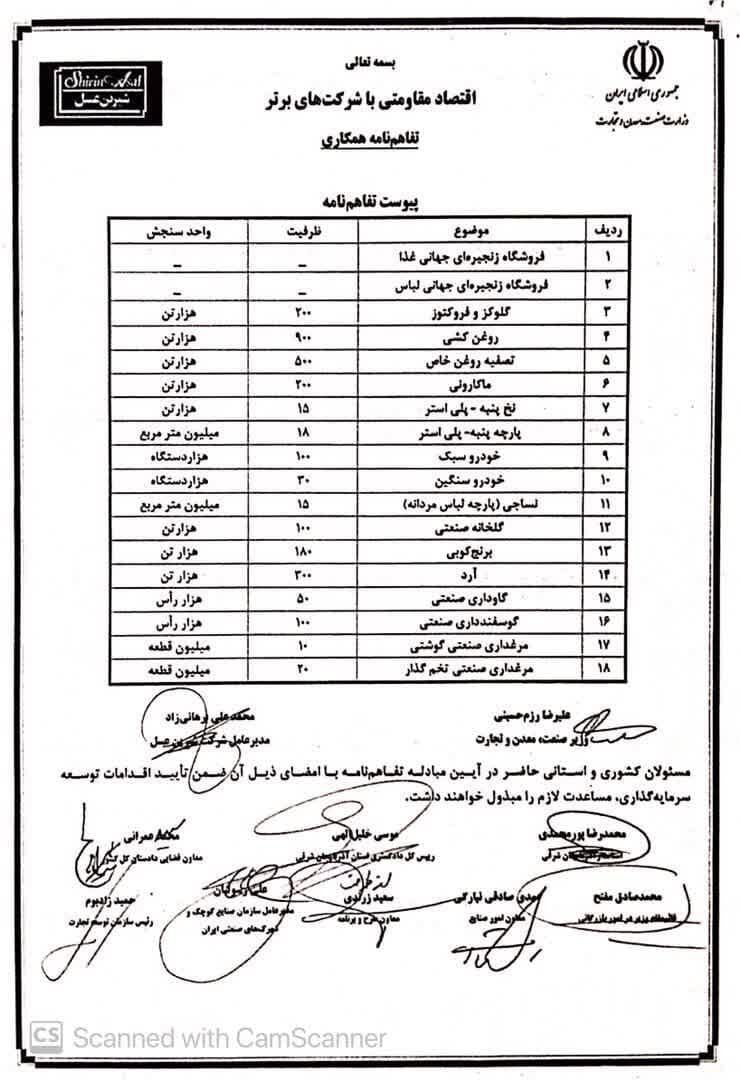 Shirin Asal
شیرین عسل
جمهوری اسلامی ایران
وزارت صنعت، معدن و تجارت
بسمه تعالی
اقتصاد مقاومتی با شرکت‌های برتر
تفاهم‌نامه همکاری
پیوست تفاهم‌نامه
ردیف موضوع ظرفیت واحد سنجش
۱ فروشگاه زنجیره‌ای جهانی غذا _ _
۲ فروشگاه زنجیره‌ای جهانی لباس _ _
۳ گلوکز و فروکتوز ۲۰۰ هزارتن
۴ روغن کشی ۹۰۰ هزارتن
۵ تصفیه روغن خاص ۵۰۰ هزارتن
۶ ماکارونی ۲۰۰ هزارتن
۷ نخ پنبه - پلی استر ۱۵ هزارتن
۸ پارچه پنبه- پلی استر ۱۸ میلیون متر مربع
۹ خودرو سبک ۱۰۰ هزاردستگاه
۱۰ خودرو سنگین ۳۰ هزاردستگاه
۱۱ نساجی (پارچه لباس مردانه) ۱۵ میلیون متر مربع
۱۲ گلخانه صنعتی ۱۰۰ هزارتن
۱۳ برنج‌کوبی ۱۸۰ هزار تن
۱۴ آرد ۳۰۰ هزار تن
۱۵ گاوداری صنعتی ۵۰ هزار رأس
۱۶ گوسفندداری صنعتی ۱۰۰ هزار رأس
۱۷ مرغداری صنعتی گوشتی ۱۰ میلیون قطعه
۱۸ مرغداری صنعتی تخم گذار ۲۰ میلیون قطعه
علیرضا رزم‌حسینی
وزیر صنعت، معدن و تجارت
محمدعلی برهانی‌زاد
مدیرعامل شرکت شیرین عسل
مسئولان کشوری و استانی حاضر در آیین مبادله تفاهم‌نامه با امضای ذیل آن ضمن تأیید اقدامات توسعه
سرمایه‌گذاری، مساعدت لازم را مبذول خواهند داشت.
محمدرضا پورمحمدی
استاندار آذربایجان شرقی
موسی خلیل الهی
رییس کل دادگستری استان آذربایجان شرقی
عمرانی
معاون قضایی دادستان کل کشور
محمدصادق مفتح
قائم‌مقام وزیر در امور بازرگانی
مهدی صادقی نیارکی
معاون امور صنایع
سعید زرندی
معاون طرح و برنامه
علی رسولیان
مدیرعامل سازمان صنایع کوچک و
شهرک‌های صنعتی ایران
حمید زادبوم
رئیس سازمان توسعه تجارت
CS Scanned with CamScanner